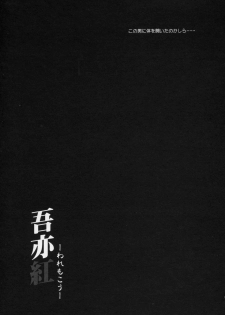 この男に体を開いたのかしら・・・
吾亦紅
ーわれもこうー